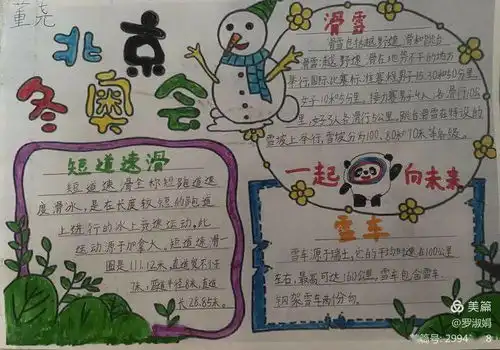 董尧
北京
冬奥会
短道速滑
短道速滑全称短跑道速
度滑冰,是在长度较短的跑道
上进行的冰上竞速运动。此
运动源于加拿大。短道速滑一
圈是111.12米,直道宽不小于
米,弯道半径8米,直道
长28.85米。
滑雪
滑雪包括越野速滑和跳台
举行国际比赛标准赛程男子15.30和50公里,
女子10和5公里。接力赛男子4人,各滑行10公
里,女子3人各滑行5公里。跳台滑雪在特设的
雪坡上举行,雪坡分为100、80和70米等各级。
一起向未来
雪车
雪车源于瑞士,它的平均时速在100公里
左右,最高可达160公里,雪车包含雪车
钢架雪车两个分句.
美篇
@罗淑娟
篇号:2994 8